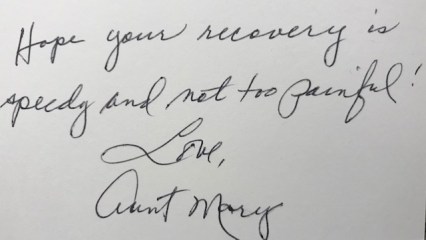 Hope your recovery is
speedy and not too painful!
Love,
Aunt Mary